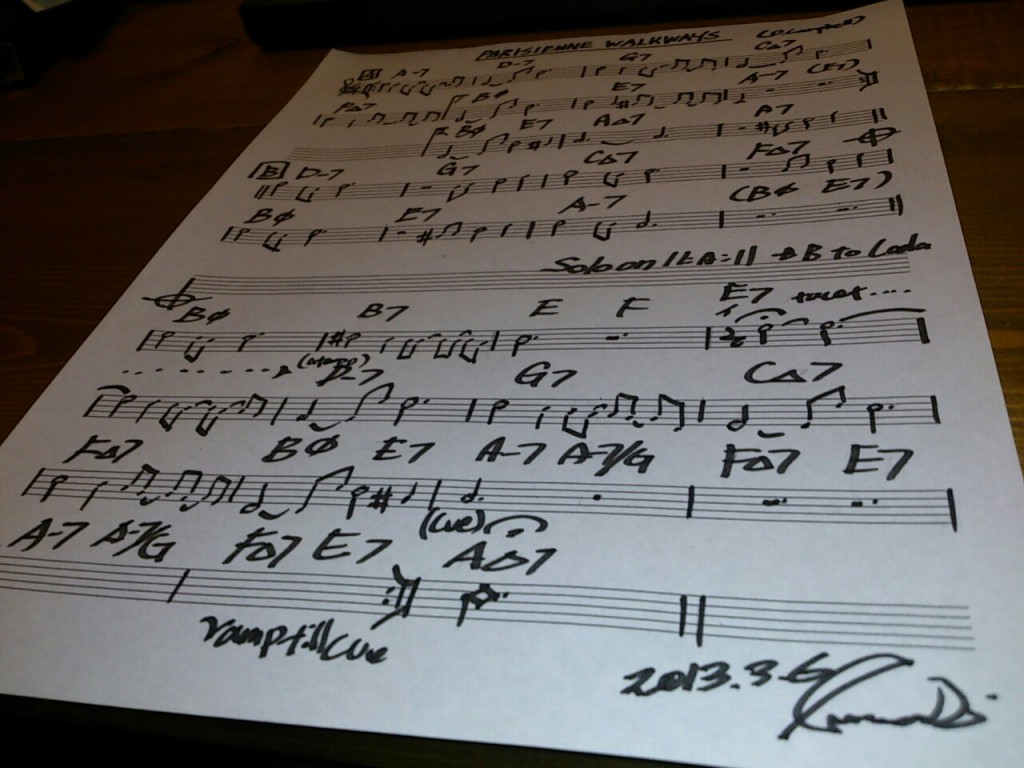 PARISIENNE WALKWAYS
A A-7 D-7 G7 C△7
F△7 BØ E7 A-7 (E7)
BØ E7 A△7 A7
B D-7 G7 C△7 F△7
BØ E7 A-7 (BØ E7)
Solo on // A // B to Coda
BØ B7 E F E7
D-7 G7 C△7
F△7 BØ E7 A-7 A-7/G F△7 E7
(cue)
A-7 A-7/G F△7 E7 A△7
Vamp till cue
2013.3.6